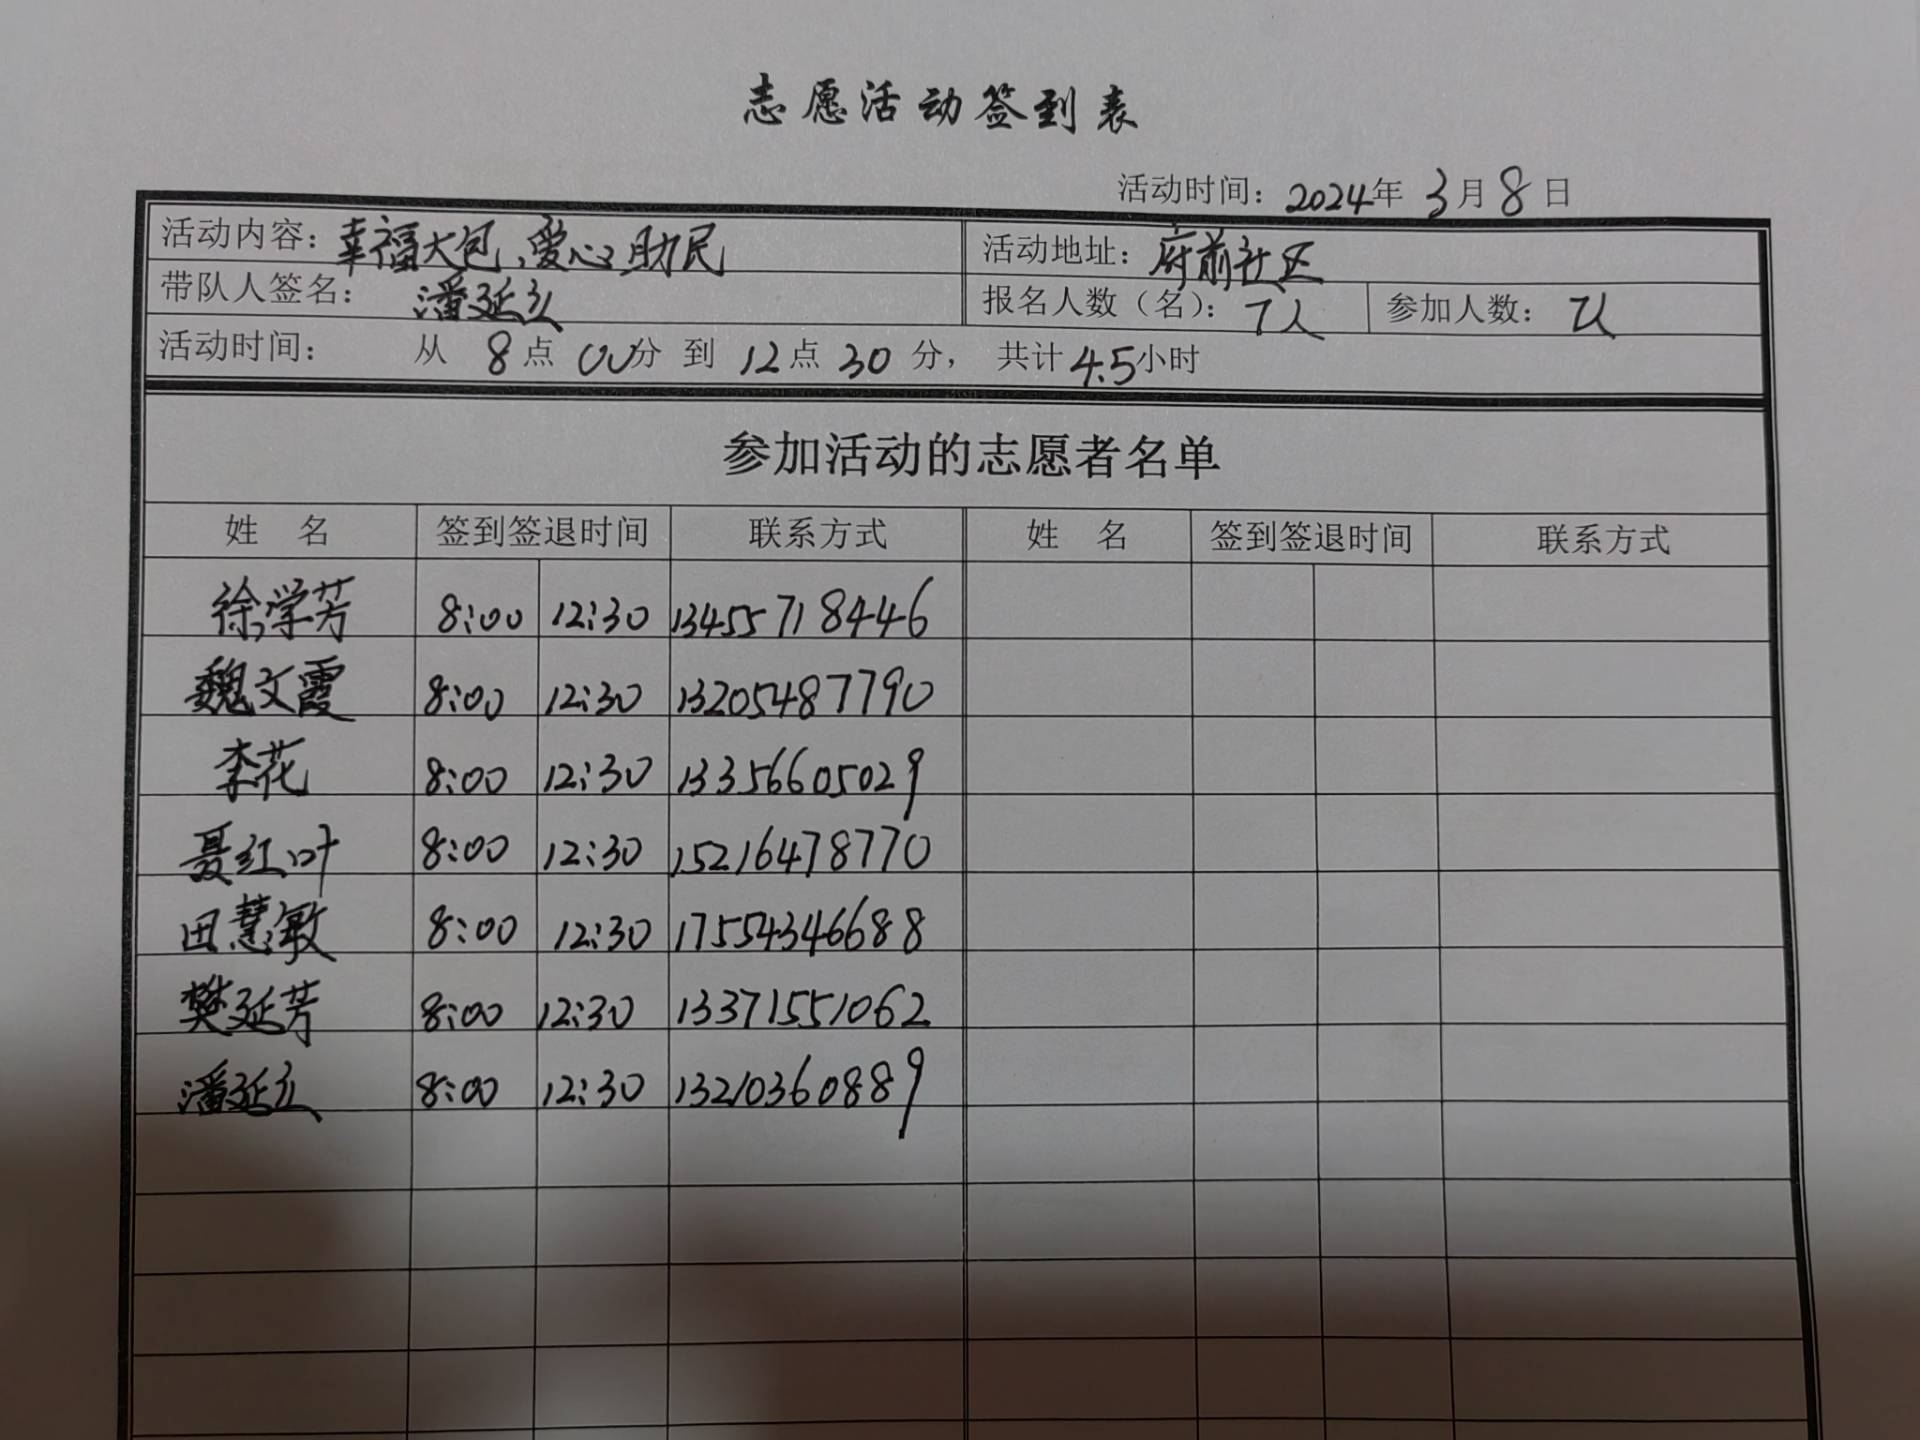 志愿活动签到表
活动时间：2024年 3月8日
活动内容：幸福大包、爱心助民 活动地址：府前社区
带队人签名：潘延立 报名人数（名）：7人 参加人数：7人
活动时间： 从 8点 00分 到 12点 30分， 共计4.5小时
参加活动的志愿者名单
姓 名 签到签退时间 联系方式 姓 名 签到签退时间 联系方式
徐学芳 8:00 12:30 13455718446
魏文霞 8:00 12:30 13205487790
李花 8:00 12:30 13356605029
聂红叶 8:00 12:30 15216478770
田慧敏 8:00 12:30 17554346688
樊延芳 8:00 12:30 13371551062
潘延立 8:00 12:30 13210360889